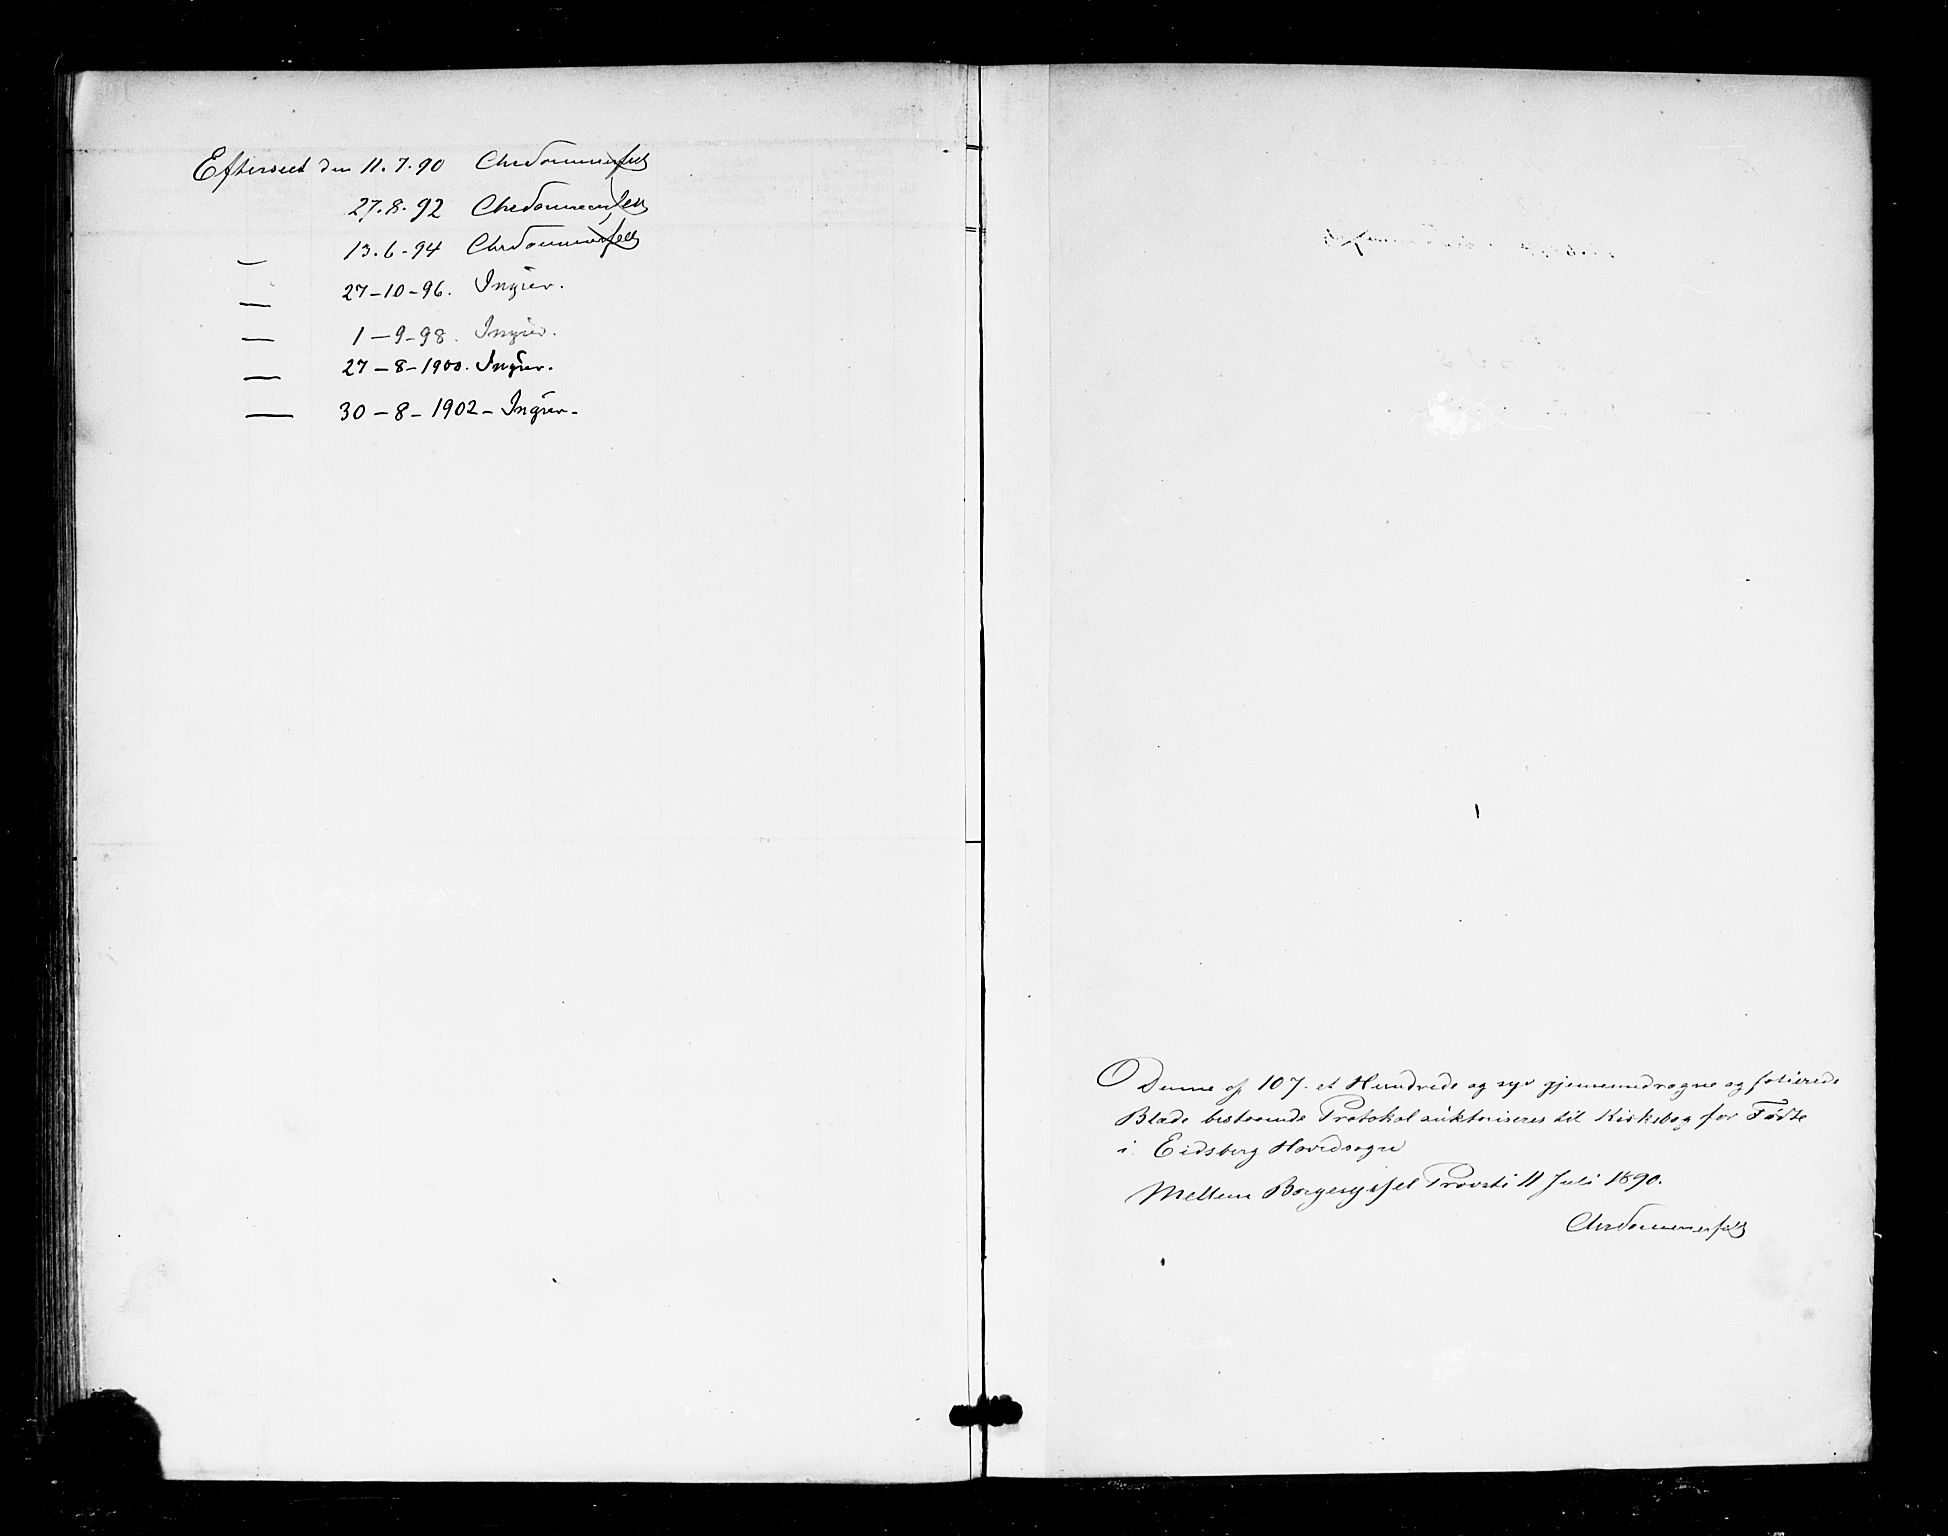 Efterseet den 11.7.90 Chr Sommerfelt
27.8.92 Chr Sommerfelt
— 13.6-94 Chr Sommerfelt
— 27-10-96. Ingier.
— 1-9-98. Ingier.
— 27-8-1900. Ingier.
— 30-8-1902- Ingier-
Denne af 107. et Hundrede og syv gjennemdragne og folierede
Blade bestaaende Protokol auktoriseres til Kirkebog for Fødte
i Eidsberg Hovedsogn
Mellem Borgesyssel Provsti 11 Juli 1890.
Chr Sommerfelt